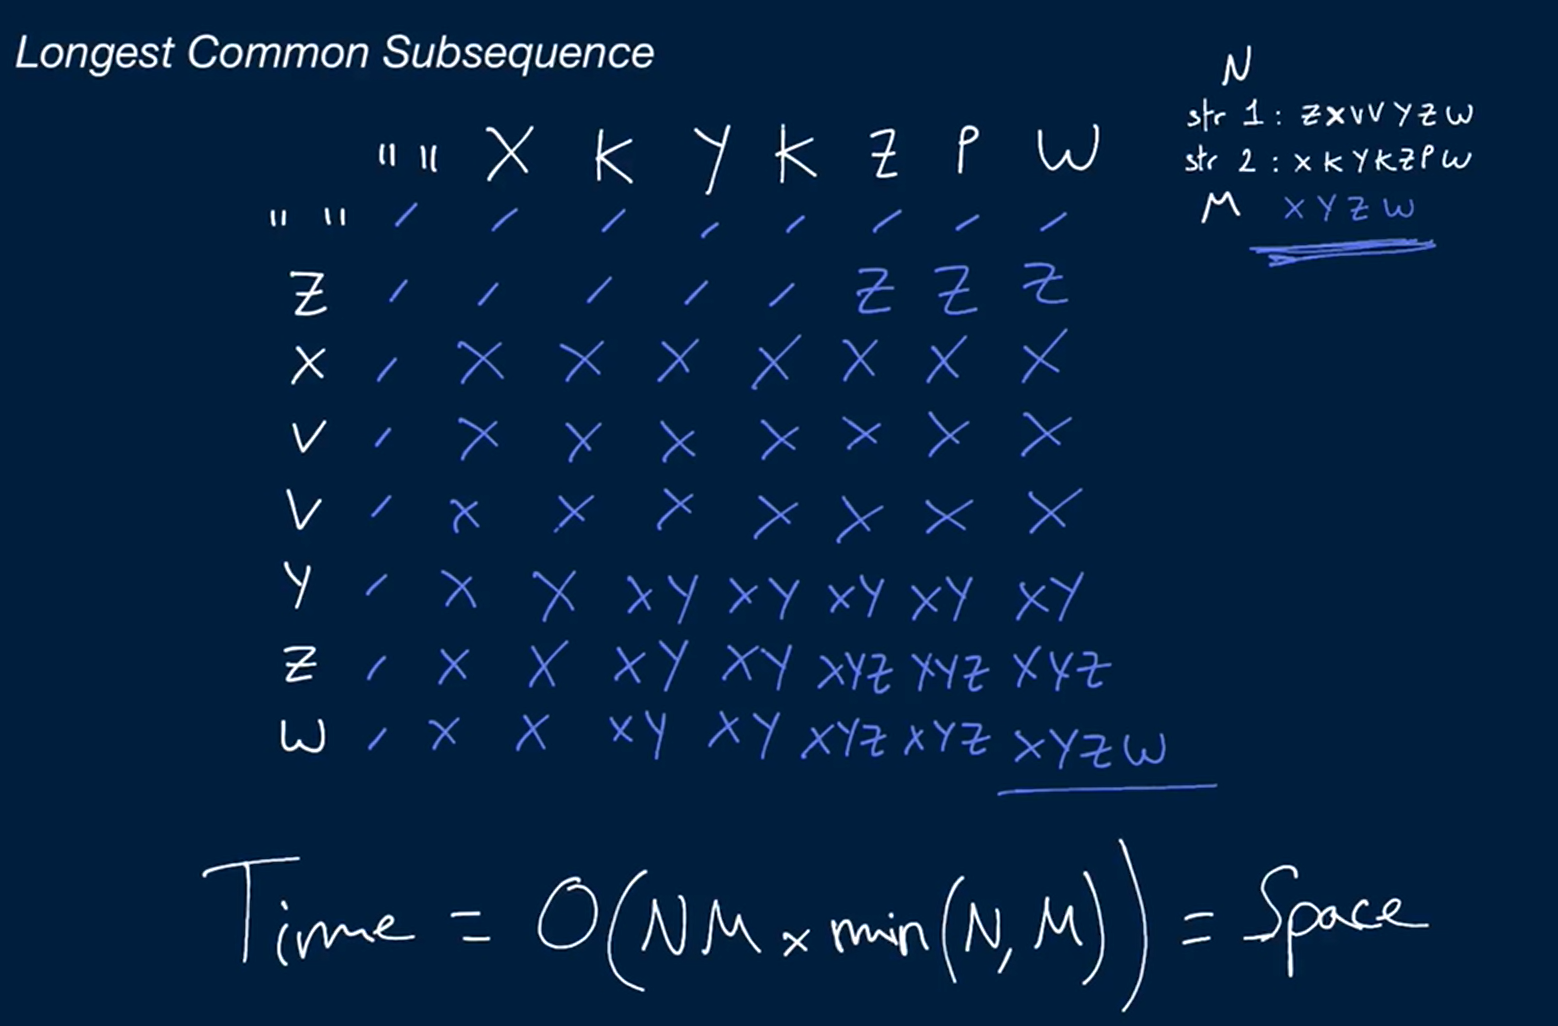 Longest Common Subsequence
N
str 1 : Z X V V Y Z W
str 2 : X K Y K Z P W
M X Y Z W
" " X K Y K Z P W
" " / / / / / / / /
Z / / / / / Z Z Z
X / X X X X X X X
V / X X X X X X X
V / X X X X X X X
Y / X X XY XY XY XY XY
Z / X X XY XY XYZ XYZ XYZ
W / X X XY XY XYZ XYZ XYZW
Time = O(NM x min(N, M)) = Space